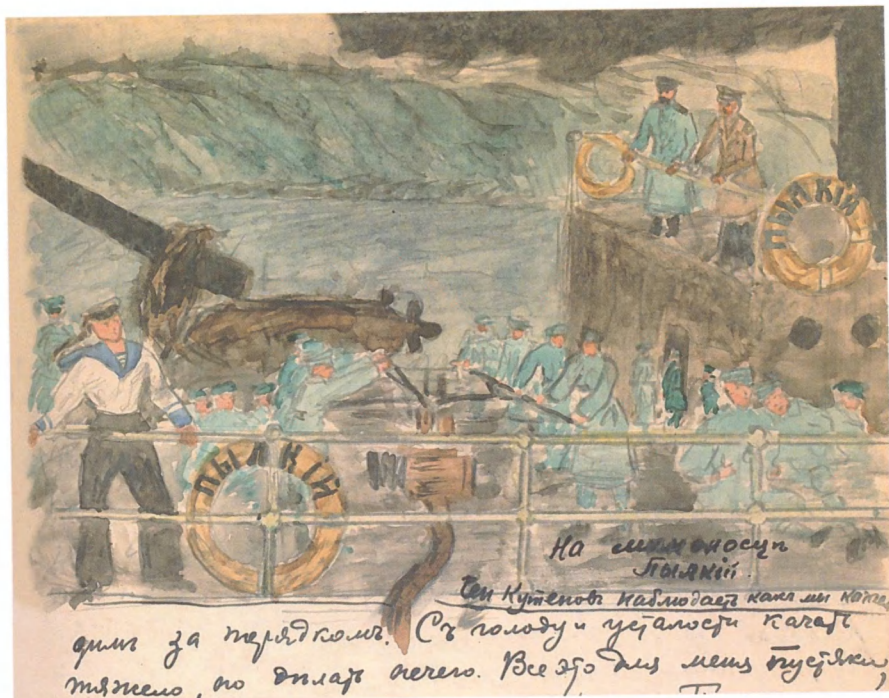 ПЫЛКІЙ
ПЫЛКІЙ
На миноносцѣ
Пылкій.
Ген Кутеповъ наблюдаетъ какъ мы
за порядкомъ. Съ голоду и усталости качать
тяжело, но дѣлать нечего. Все это для меня пустяки,